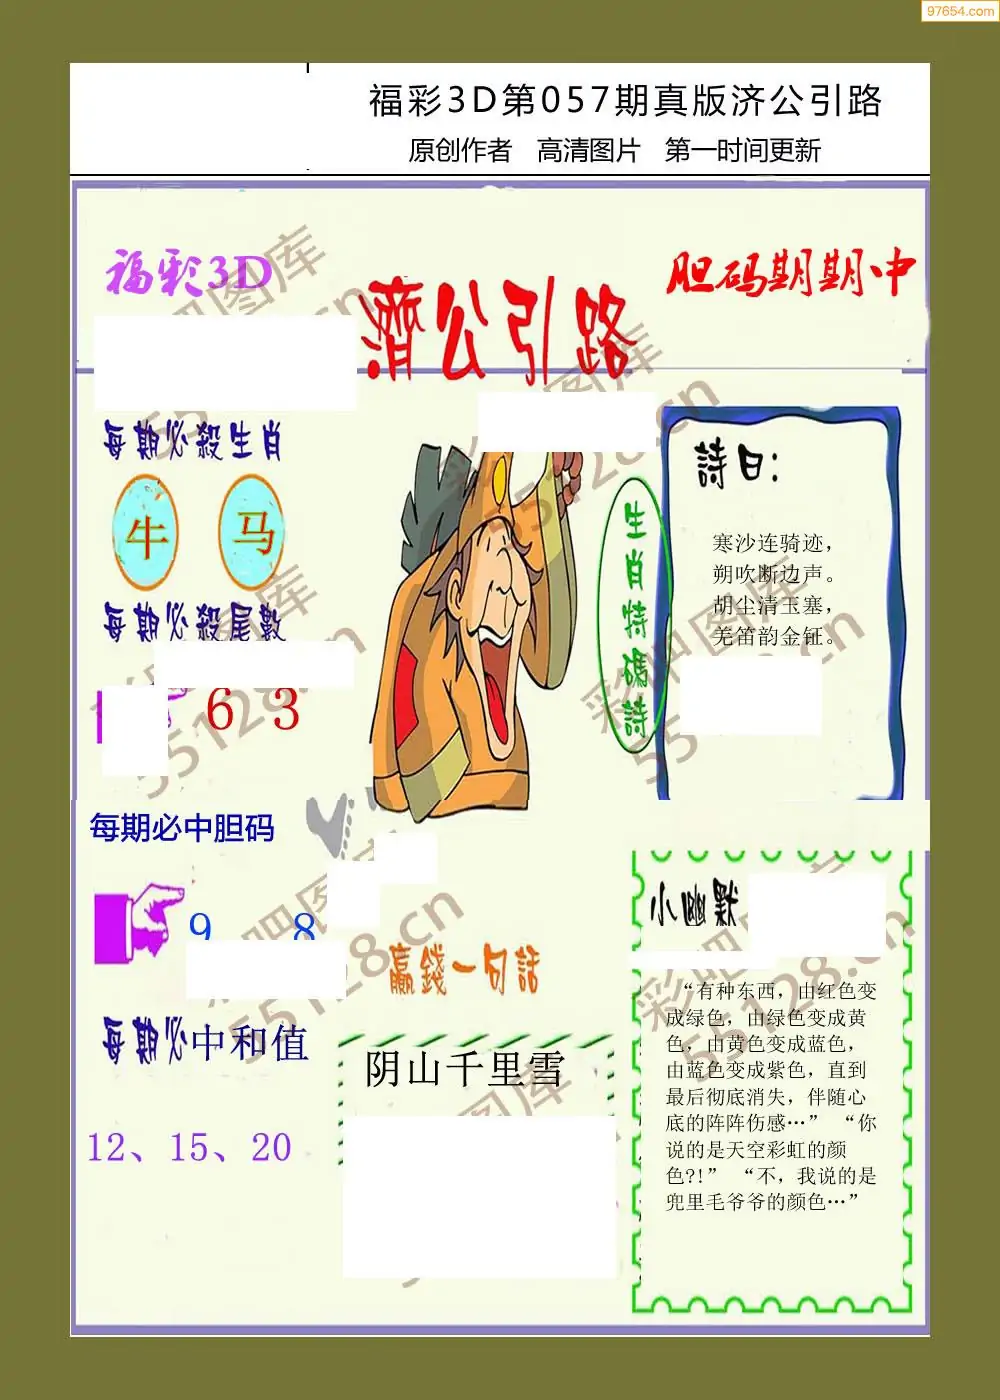 97654.com
福彩3D第057期真版济公引路
原创作者 高清图片 第一时间更新
福彩3D
濟公引路
胆码期期中
每期必殺生肖
牛 马
每期必殺尾數
6 3
每期必中胆码
9 8
每期必中和值
12、15、20
生肖特碼詩
詩曰:
寒沙连骑迹，
朔吹断边声。
胡尘清玉塞，
羌笛韵金钲。
赢錢一句話
阴山千里雪
小幽默
“有种东西，由红色变
成绿色，由绿色变成黄
色，由黄色变成蓝色，
由蓝色变成紫色，直到
最后彻底消失，伴随心
底的阵阵伤感…” “你
说的是天空彩虹的颜
色?!” “不，我说的是
兜里毛爷爷的颜色…”
彩吧图库
55128.cn